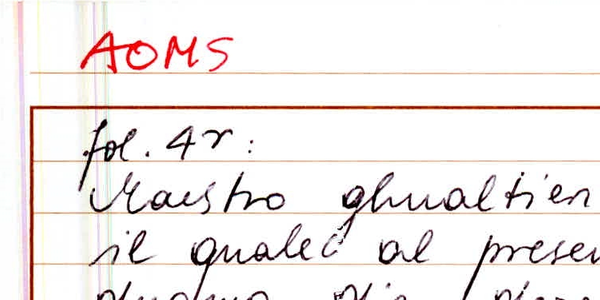 AOMS
fol. 4r:
Maestro ghualtieri
il quale al presen